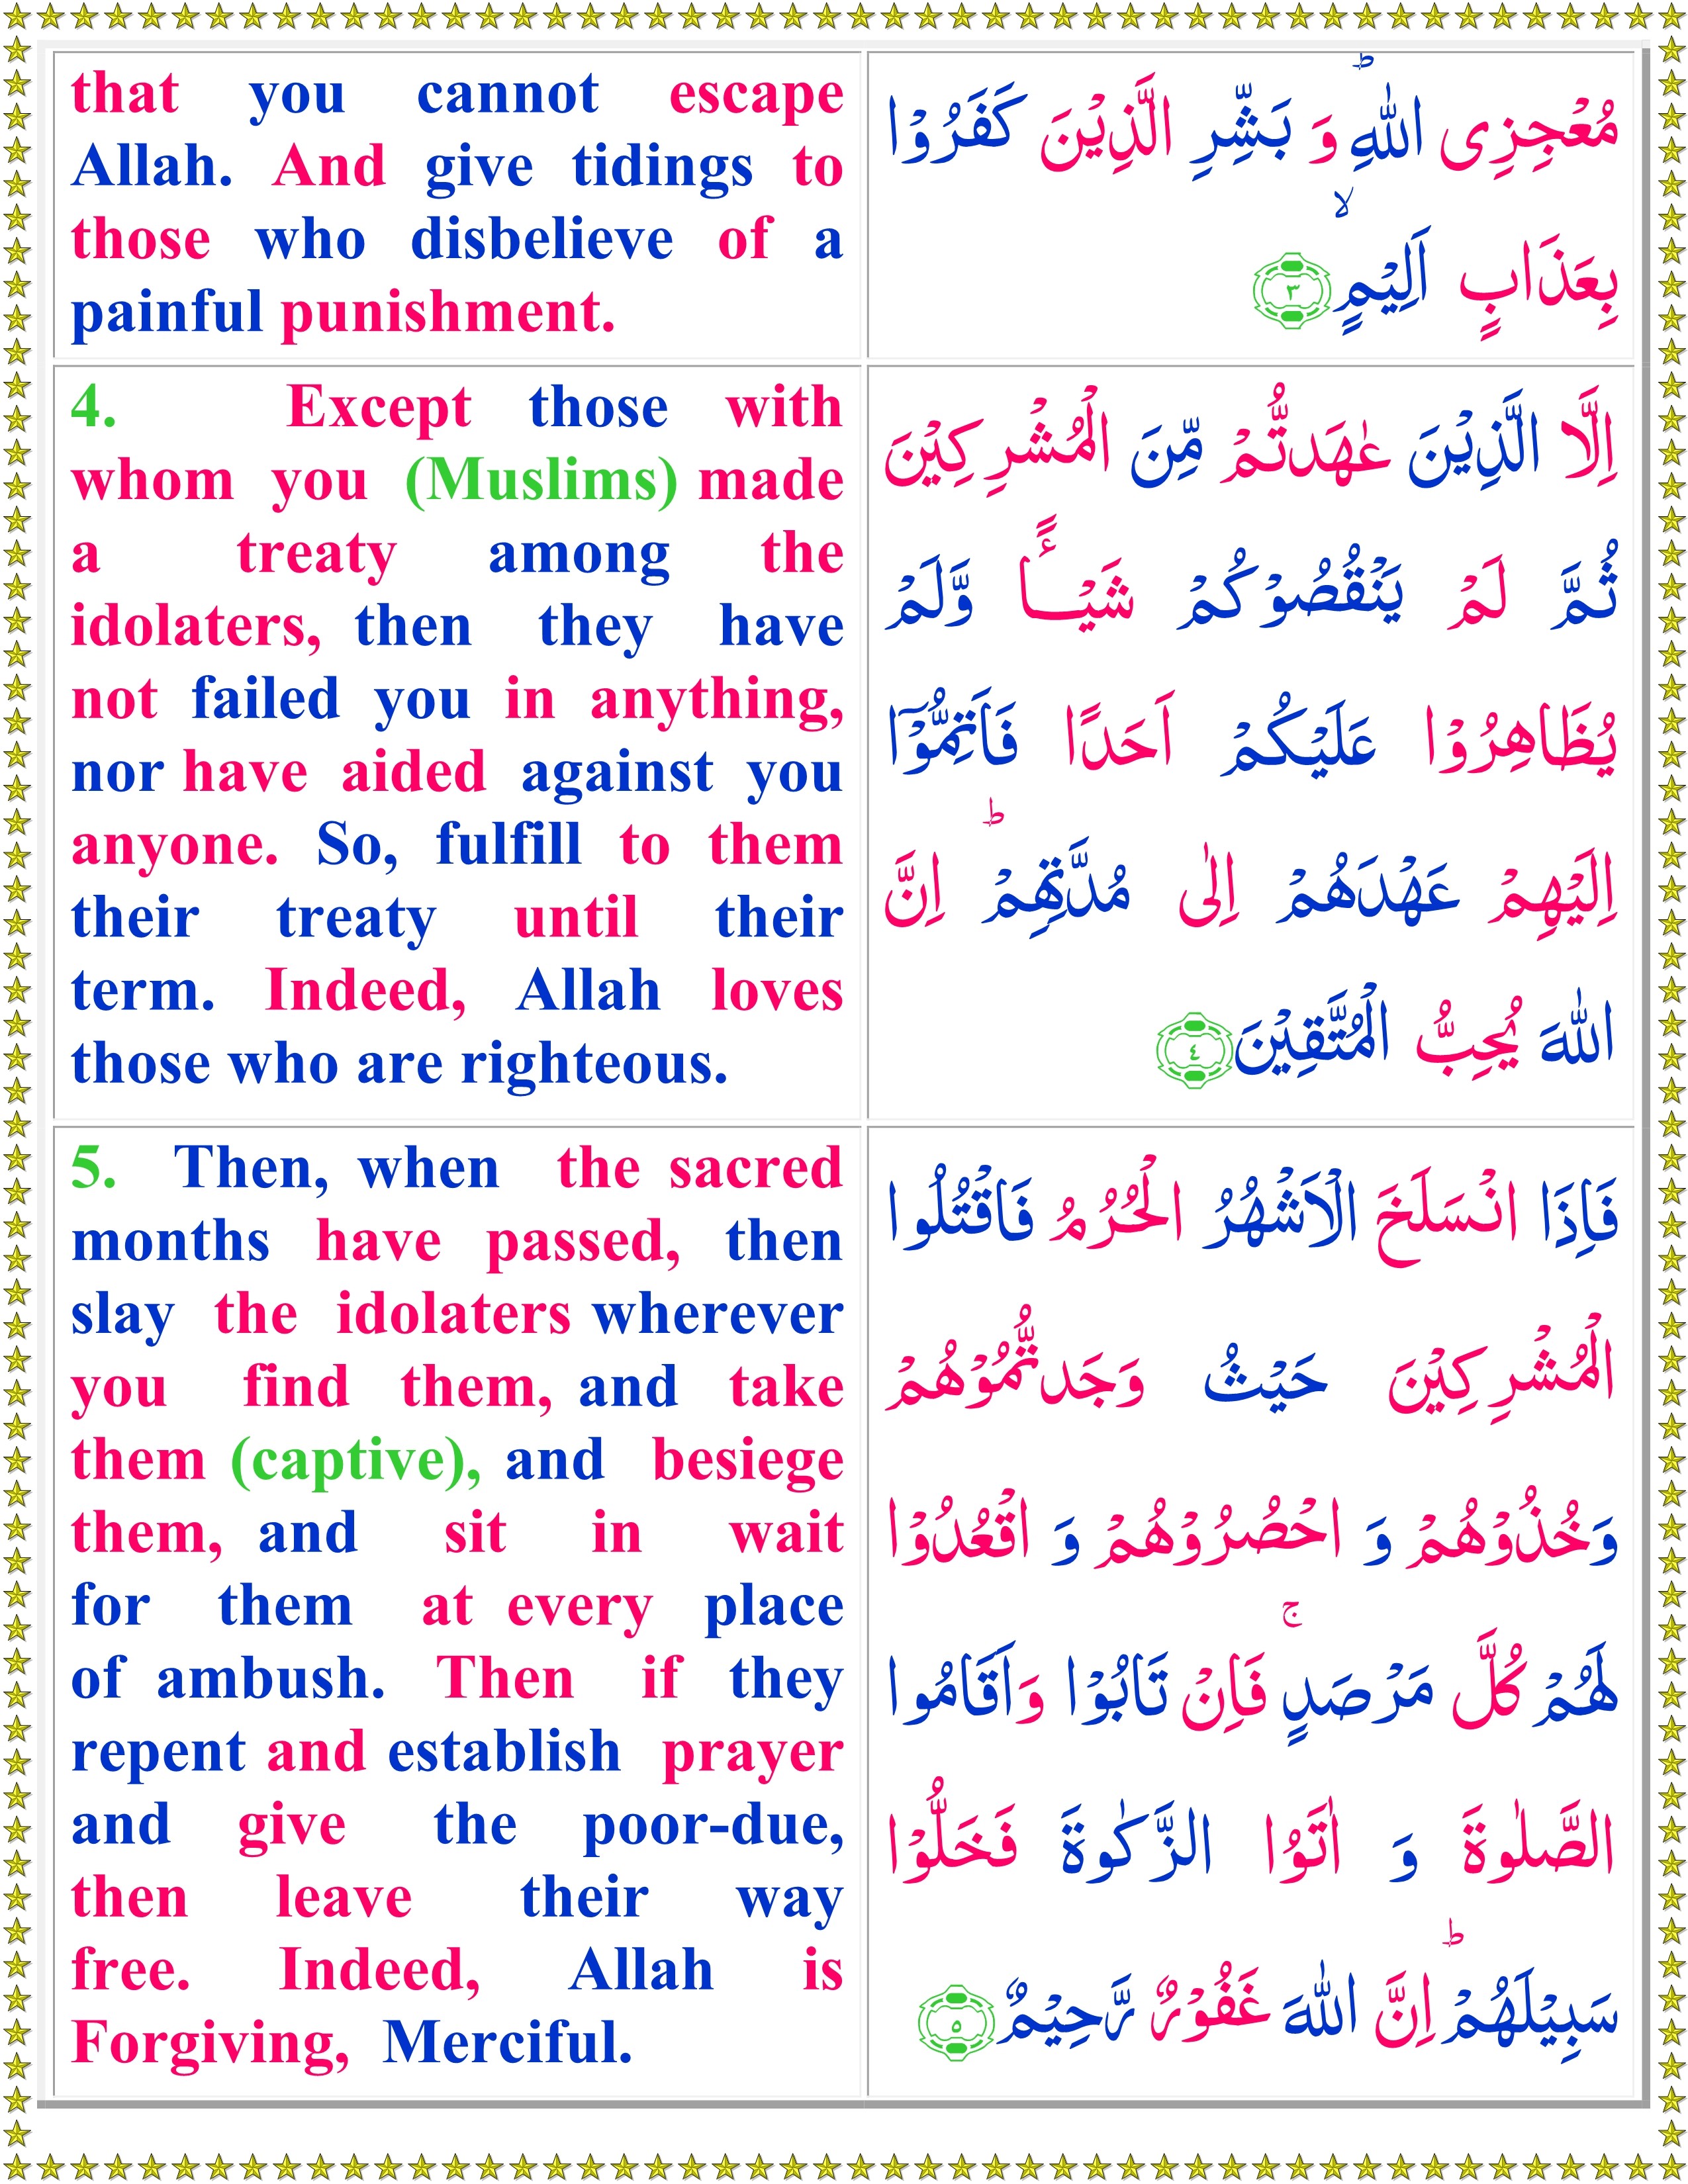 that you cannot escape
Allah. And give tidings to
those who disbelieve of a
painful punishment.
مُعْجِزِی اللّٰهِ ؕ وَ بَشِّرِ الَّذِیْنَ كَفَرُوْا
بِعَذَابٍ اَلِیْمٍ ۙ ٣
4. Except those with
whom you (Muslims) made
a treaty among the
idolaters, then they have
not failed you in anything,
nor have aided against you
anyone. So, fulfill to them
their treaty until their
term. Indeed, Allah loves
those who are righteous.
اِلَّا الَّذِیْنَ عٰهَدتُّمْ مِّنَ الْمُشْرِكِیْنَ
ثُمَّ لَمْ یَنْقُصُوْكُمْ شَیْـًٔا وَّلَمْ
یُظَاهِرُوْا عَلَیْكُمْ اَحَدًا فَاَتِمُّوْۤا
اِلَیْهِمْ عَهْدَهُمْ اِلٰی مُدَّتِهِمْ ؕ اِنَّ
اللّٰهَ یُحِبُّ الْمُتَّقِیْنَ ٤
5. Then, when the sacred
months have passed, then
slay the idolaters wherever
you find them, and take
them (captive), and besiege
them, and sit in wait
for them at every place
of ambush. Then if they
repent and establish prayer
and give the poor-due,
then leave their way
free. Indeed, Allah is
Forgiving, Merciful.
فَاِذَا انْسَلَخَ الْاَشْهُرُ الْحُرُمُ فَاقْتُلُوا
الْمُشْرِكِیْنَ حَیْثُ وَجَدتُّمُوْهُمْ
وَخُذُوْهُمْ وَ احْصُرُوْهُمْ وَ اقْعُدُوْا
لَهُمْ كُلَّ مَرْصَدٍ ۚ فَاِنْ تَابُوْا وَاَقَامُوا
الصَّلٰوةَ وَ اٰتَوُا الزَّكٰوةَ فَخَلُّوْا
سَبِیْلَهُمْ ؕ اِنَّ اللّٰهَ غَفُوْرٌ رَّحِیْمٌ ٥